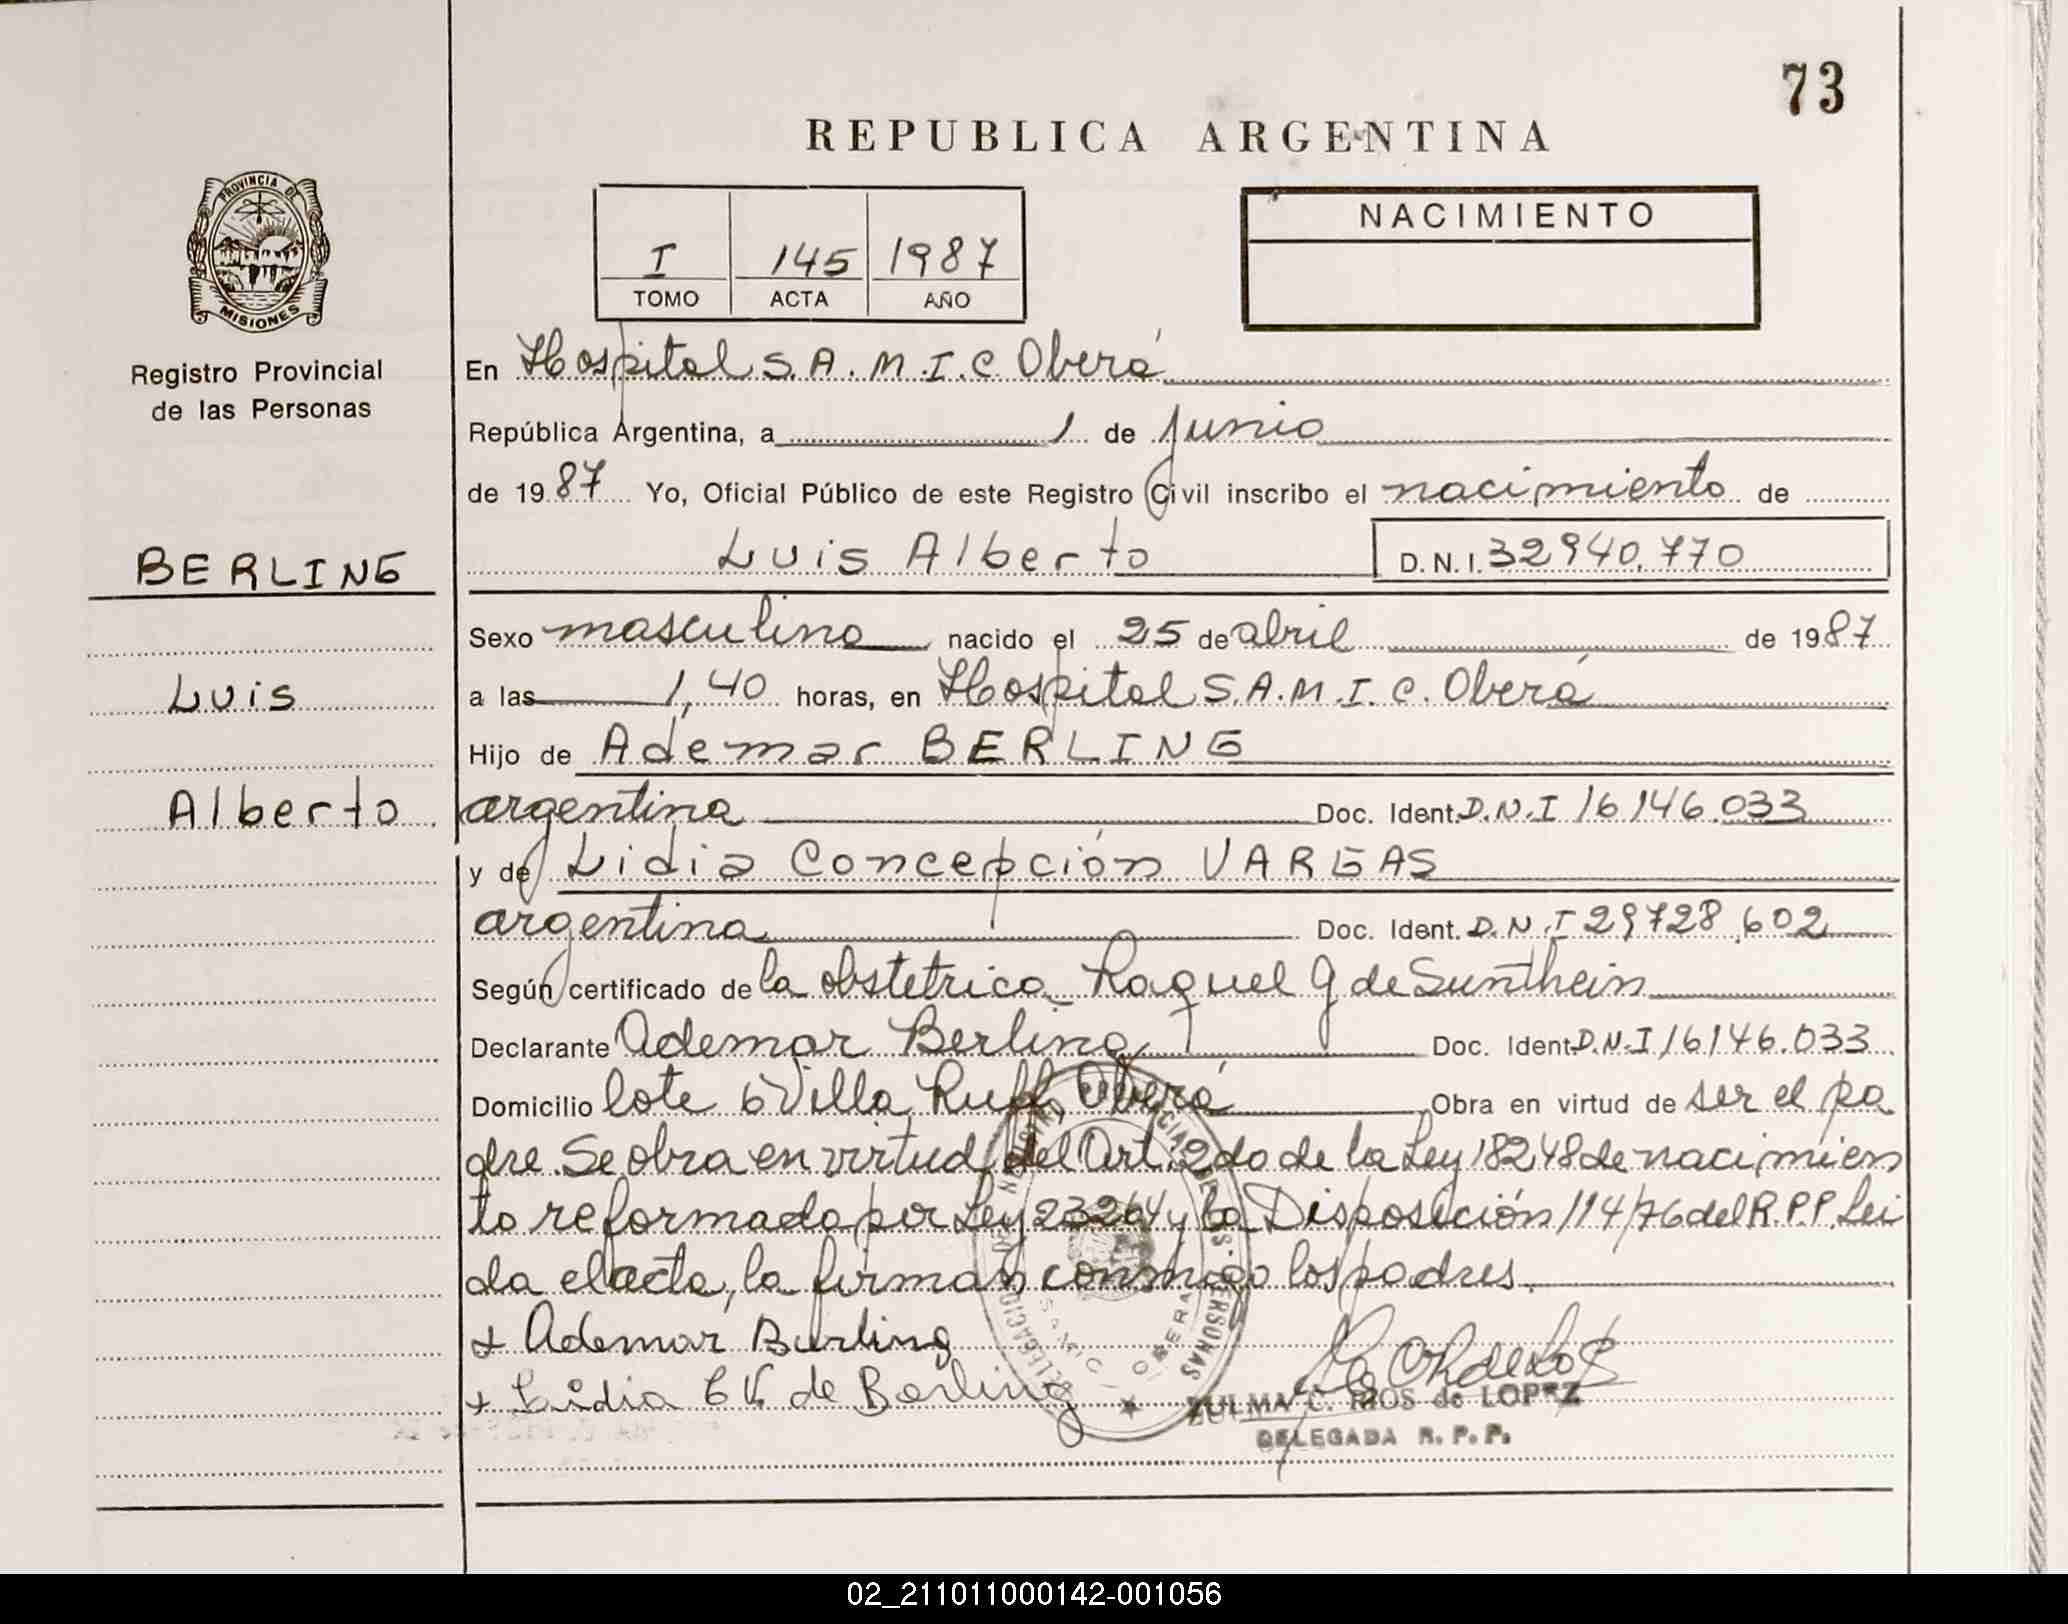 73
REPUBLICA ARGENTINA
PROVINCIA DE
MISIONES
Registro Provincial
de las Personas
I 145 1987
TOMO ACTA AÑO
NACIMIENTO
En Hospital S.A.M.I.C. Oberá
República Argentina, a 1 de Junio
de 1987 Yo, Oficial Público de este Registro Civil inscribo el nacimiento de
Luis Alberto D.N.I. 32940.770
BERLING
Luis
Alberto
Sexo masculino nacido el 25 de abril de 1987
a las 1,40 horas, en Hospital S.A.M.I.C. Oberá
Hijo de Ademar BERLING
argentina Doc. Ident. D.N.I 16146.033
y de Lidia Concepción VARGAS
argentina Doc. Ident. D.N.I 29728.602
Según certificado de la obstetrica Raquel G de Sunthein
Declarante Ademar Berling Doc. Ident. D.N.I 16146.033
Domicilio lote 6 Villa Ruff, Oberá Obra en virtud de ser el pa
dre. Se obra en virtud del Art. 2do de la Ley 18248 de nacimien
to reformado por Ley 23264 y la Disposición 114/76 del R.P.P. Lei
da el acta, la firman conmigo los padres.
+ Ademar Berling
+ Lidia C V. de Berling
ZULMA C. RIOS de LOPEZ
DELEGADA R. P. P.
02_211011000142-001056